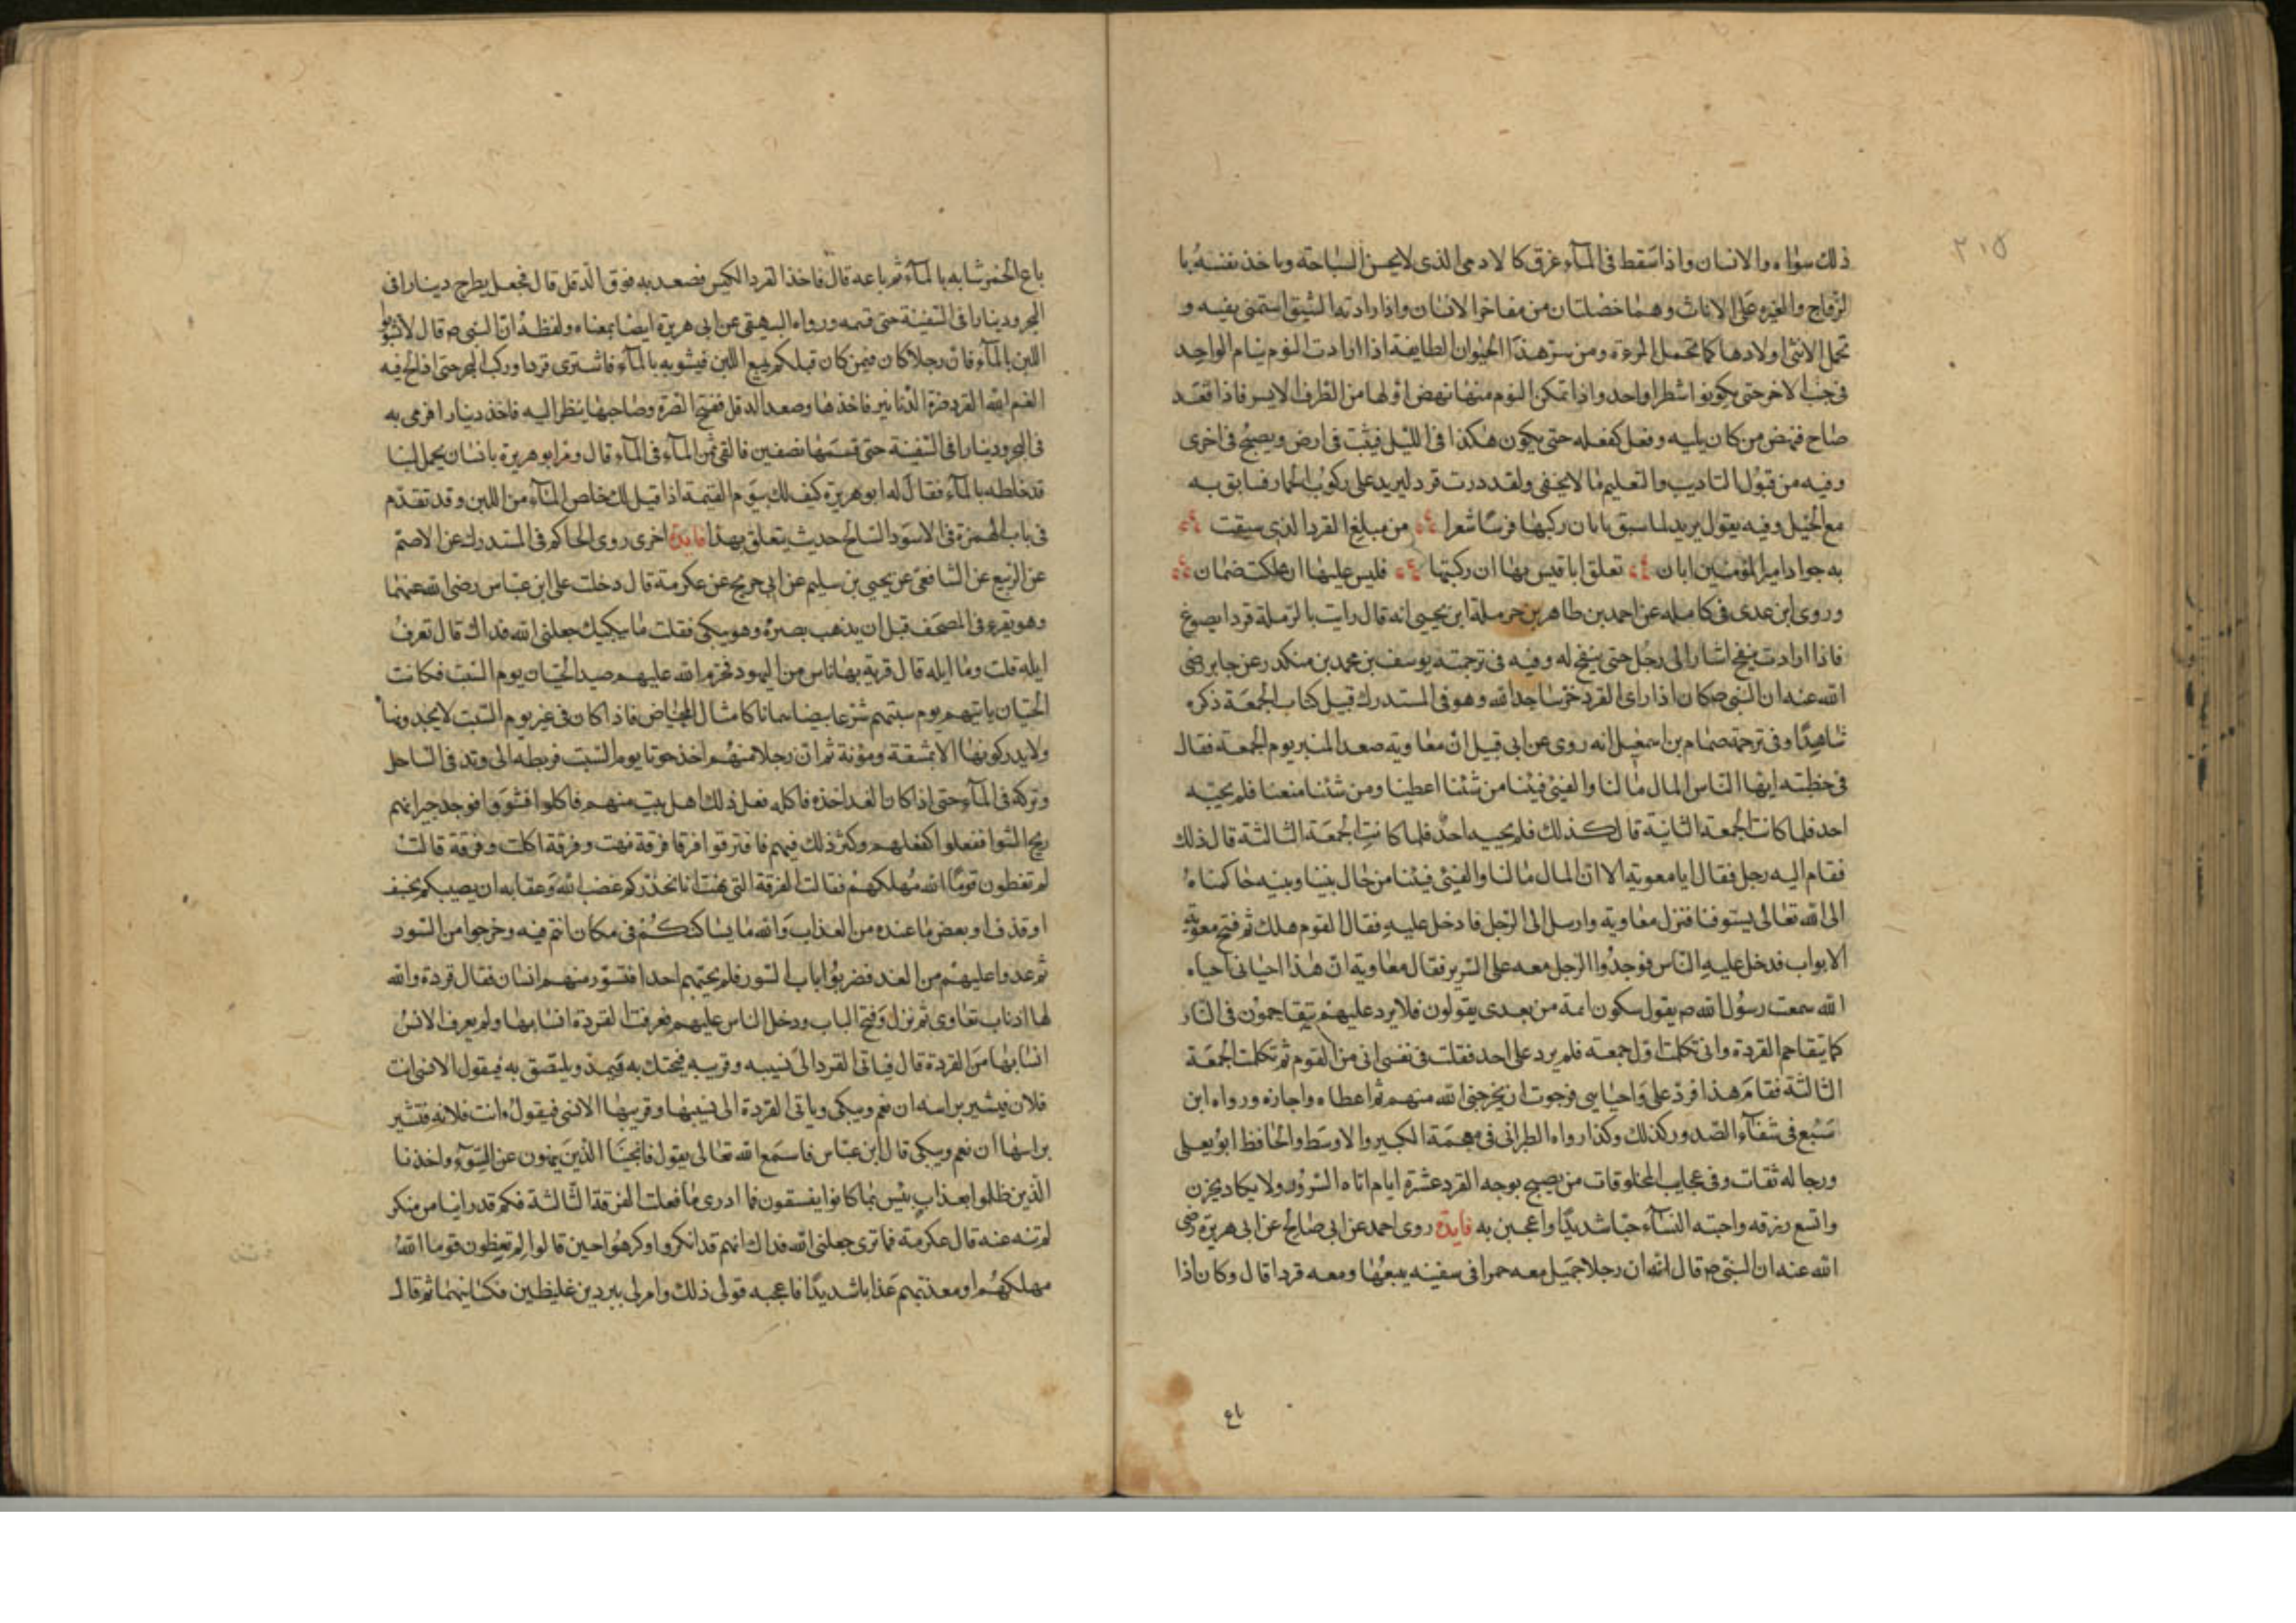 ٢١٥
ذلك سواء والانسان واذا سقط فى المآء غرق كالادمى الذى لا يحسن السباحة وياخذ نفسه با
لزواج والغيرة على الاناث وهما خصلتان من مفاخر الانسان واذا زاد به الشبق استمنى بفيه و
تحمل الانثى اولادها كما تحمل المرءة ومن سر هذا الحيوان الطايفة اذا ارادت النوم ينام الواحد
فى جنب الاخر حتى يكونوا شطرا واحد واذا تمكن النوم منها نهض اولها من الطرف الايسر فاذا قعد
صاح فنهض من كان يليه وفعل كفعله حتى يكون هكذا فى الليل فيثت فى ارض ويصبح فى اخرى
وفيه من قبول التاديب والتعليم ما لا يخفى ولقد درت قرد ليزيد على ركوب الحمار فسابق به
مع الخيل وفيه يقول يزيد لما سبق بابان ركبها فرسا شعرا من مبلغ القرد الذى سبقت
به جواد امير المؤمنين ابان تعلق اباقيس بها ان ركبتها فليس عليها ان هلكت ضمان
وروى ابن عدى فى كامله عن احمد بن طاهر بن حرملة ابن يحيى انه قال رايت بالرملة قردا يصوغ
فاذا ارادت ينفخ اشار الى رجل حتى ينفخ له وفيه فى ترجمته يوسف بن محمد بن منكدر عن جابر رضى
الله عنه ان النبى ص كان اذا راى القرد خر ساجدا لله وهو فى المستدرك قبيل كتاب الجمعة ذكره
شاهدًا وفى ترجمة ضمام بن اسمعيل انه روى عن ابى قبيل ان معاوية صعد المنبر يوم الجمعة فقال
فى خطبته ايها الناس المال مالنا والفئ فيئنا من شئنا اعطينا ومن شئنا منعنا فلم يجبه
احد فلما كانت الجمعة الثانية قال كذلك فلم يجبه احد فلما كانت الجمعة الثالثة قال ذلك
فقام اليه رجل فقال ايا معوية الا ان المال مالنا والفئ فيئنا من حال بيننا وبينه حاكمناه
الى الله تعالى بسيوفنا فنزل معاوية وارسل الى الرجل فادخل عليه فقال القوم هلك ثم فتح معوية
الابواب فدخل عليه الناس فوجدوا الرجل معه على السرير فقال معاوية ان هذا احيانى احياه
الله سمعت رسول الله ص يقول سكون ائمة من بعدى يقولون فلا يرد عليهم يتقاحمون فى النار
كما يتقاحم القردة وانى تكلمت اول جمعة فلم يرد على احد فقلت فى نفسى انى من القوم ثم تكلمت الجمعة
الثالثة فقام هذا فرد على واحياسى فرجوت ان يخرجنى الله منهم ثم اعطاه واجازه ورواه ابن
سبع فى شفآء الصدور كذلك وكذا رواه الطبرانى فى معجمة الكبير والاوسط والحافظ ابو يعلى
ورجاله ثقات وفى عجايب المخلوقات من يصبح بوجه القرد عشرة ايام اتاه السرور ولا يكاد يحزن
واتسع رزقه واحبته النسآء حبا شديدًا واعجبن به فايدة روى احمد عن ابى صالح عن ابى هريرة رضى
الله عنه ان النبى ص قال انه ان رجلا حميل معه خمرا فى سفينه يبعها ومعه قردا قال وكان اذا
باع
باع الخمر شابه بالمآء ثم باعه قال فاخذ القرد الكيس فصعد به فوق الدقل قال فجعل يطرح دينارا فى
البحر ودينارا فى السفينة حتى قسمه ورواه البيهقى عن ابى هريرة ايضا بمعناه ولفظه ان النبى ص قال لا تشوبوا
اللبن بالمآء فان رجلا كان فيمن كان قبلكم يبيع اللبن فيشوبه بالمآء فاشترى قردا وركب البحر حتى اذا لج فيه
الهم الله القرد صرة الدنانير فاخذها وصعد الدقل ففتح الصرة وصاحبها ينظر اليه فاخذ دينارا فرمى به
فى البحر ودينارا فى السفينة حتى قسمها نصفين فالقى ثمن المآء فى المآء قال ومر ابو هريرة بانسان يحمل لبنا
قد خلطه بالمآء فقال له ابو هريرة كيف لك بيوم القيمة اذا قيل لك خاص المآء من اللبن وقد تقدم
فى باب الهمزة فى الاسود السالخ حديث يتعلق بهذا فايدة اخرى روى الحاكم فى المستدرك عن الاصم
عن الربيع عن الشافعى عن يحيى بن سليم عن ابى جريج عن عكرمة قال دخلت على ابن عباس رضى الله عنهما
وهو يقرء فى المصحف قبل ان يذهب بصره وهو يبكى فقلت ما يبكيك جعلنى الله فداك قال تعرف
ايله قلت وما ايله قال قرية بها ناس من اليهود فحرم الله عليهم صيد الحيتان يوم السبت فكانت
الحيتان ياتيهم يوم سبتهم شرعا بيضا سمانا كامثال المخاض فاذا كان فى غير يوم السبت لا يجدونها
ولا يدركونها الا بمشقة ومؤنة ثم ان رجلا منهم اخذ حوتا يوم السبت فربطه الى وتد فى الساحل
وتركه فى المآء حتى اذا كان الغد اخذه فاكله ففعل ذلك اهل بيت منهم فاكلوا فشووا فوجد جيرانهم
ريح الشوا ففعلوا كفعلهم وكثر ذلك فيهم فافترقوا فرقا فرقة نهت وفرقة اكلت وفرقة قالت
لم تعظون قومًا الله مهلكهم فقالت الفرقة التى نهت انا نحذركم غضب الله وعقابه ان يصيبكم بخسف
او قذف او بعض ما عنده من العذاب والله ما يساكنكم فى مكان انتم فيه وخرجوا من السور
ثم عدوا عليهم من الغد فضربوا باب السور فلم يجبهم احدا فتسور منهم انسان فقال قردة والله
لها اذناب تعاوى ثم نزل وفتح الباب ودخل الناس عليهم فعرفت القردة انسابها ولم يعرف الانس
انسابها من القردة قال فياتى القرد الى نسيبه وقريبه فيحتك به فيمد ويلتصق به فيقول الانسى انت
فلان فيشير براسه ان نعم ويبكى وياتى القردة الى نسيبها وقريبها الانسى فيقول انت فلانه فتشير
براسها ان نعم ويبكى قال ابن عباس فاسمع الله تعالى يقول فانجينا الذين ينهون عن السوء واخذنا
الذين ظلموا بعذاب بئيس بما كانوا يفسقون فما ادرى ما فعلت الفرقة الثالثة فكم قد راينا من منكر
لم ننه عنه قال عكرمة فما ترى جعلنى الله فداك انهم قد انكروا وكرهوا حين قالوا لم تعظون قوما الله
مهلكهم او معذبهم عذابا شديدًا فاعجبه قولى ذلك وامر لى ببردين غليظين فكسانيهما ثم قال